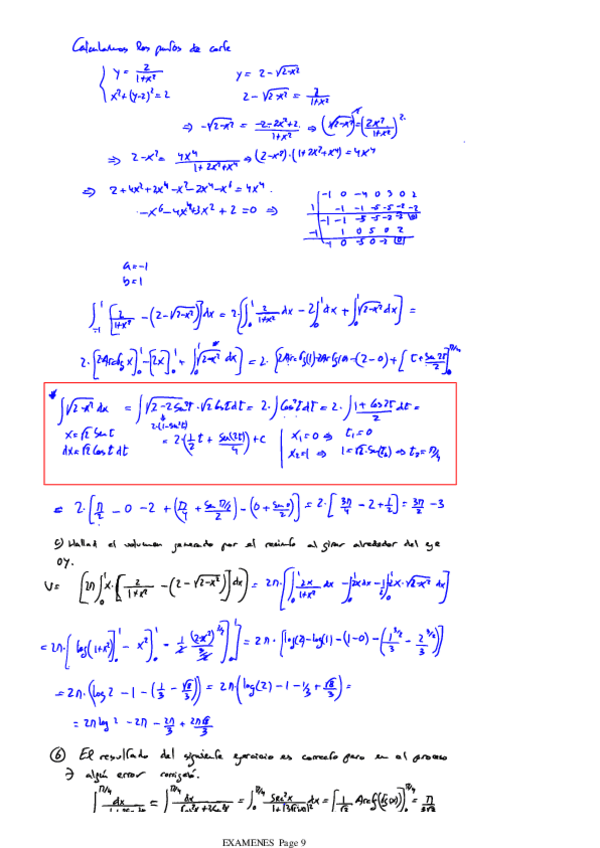 Calculamos los puntos de corte
{ y = 2/(1+x²)    y = 2 - √(2-x²)
x² + (y-2)² = 2    2 - √(2-x²) = 2/(1+x²)
⇒ -√(2-x²) = (-2-2x²+2)/(1+x²) ⇒ (√(2-x²))² = (2x²/(1+x²))²
⇒ 2-x² = 4x⁴/(1+2x²+x⁴) ⇒ (2-x²)·(1+2x²+x⁴) = 4x⁴
⇒ 2+4x²+2x⁴-x²-2x⁴-x⁶ = 4x⁴.
-x⁶-4x⁴+3x²+2 = 0 ⇒
-1 0 -4 0 3 0 2
1 | -1 -1 -5 -5 -2 -2
-1 -1 -5 -5 -2 -2 |0|
-1 | 1 0 5 0 2
-1 0 -5 0 -2 |0|
a = -1
b = 1
∫₋₁¹ [2/(1+x²) - (2-√(2-x²))]dx = 2·[∫₀¹ 2/(1+x²) dx - 2∫₀¹ dx + ∫₀¹ √(2-x²) dx] =
2·[2Arctg x]₀¹ - [2x]₀¹ + ∫₀¹ √(2-x²) dx] = 2·[2Arctg(1)-2Arctg(0) - (2-0) + [t + sen 2t/2]₀^π/4
* ∫√(2-x²) dx = ∫√(2-2Sen²t)·√2 Cos t dt = 2·∫Cos²t dt = 2·∫(1+Cos 2t)/2 dt =
2·(1-sen²t)
x = √2 Sen t    = 2·(½ t + Sen(2t)/4) + C    x₁=0 ⇒ t₁=0
dx = √2 Cos t dt    x₂=1 ⇒ 1=√2·Sen(t₂) ⇒ t₂=π/4
= 2·[π/2 - 0 - 2 + (π/4 + Sen π/2/2) - (0 + Sen 0/2)] = 2·[3π/4 - 2 + ½] = 3π/2 - 3
5) Hallad el volumen generado por el recinto al girar alrededor del eje
OY.
V = [2π∫₀¹ x·[2/(1+x²) - (2-√(2-x²))]dx] = 2π·[∫₀¹ 2x/(1+x²) dx - ∫₀¹ 2x dx - ½∫₀¹ 2x·√(2-x²) dx]
= 2π·[log(1+x²)]₀¹ - x²]₀¹ - ½ (2-x²)^3/2 / 3/2]₀¹] = 2π·[log(2)-log(1)-(1-0)-(1^3/2/3 - 2^3/2/3)]
= 2π·(log 2 - 1 - (1/3 - √8/3)) = 2π·(log(2) - 1 - 1/3 + √8/3) =
= 2π log 2 - 2π - 2π/3 + 2π√8/3
⑥ El resultado del siguiente ejercicio es correcto pero en el proceso
∃ algún error corrígelo.
EXAMENES Page 9